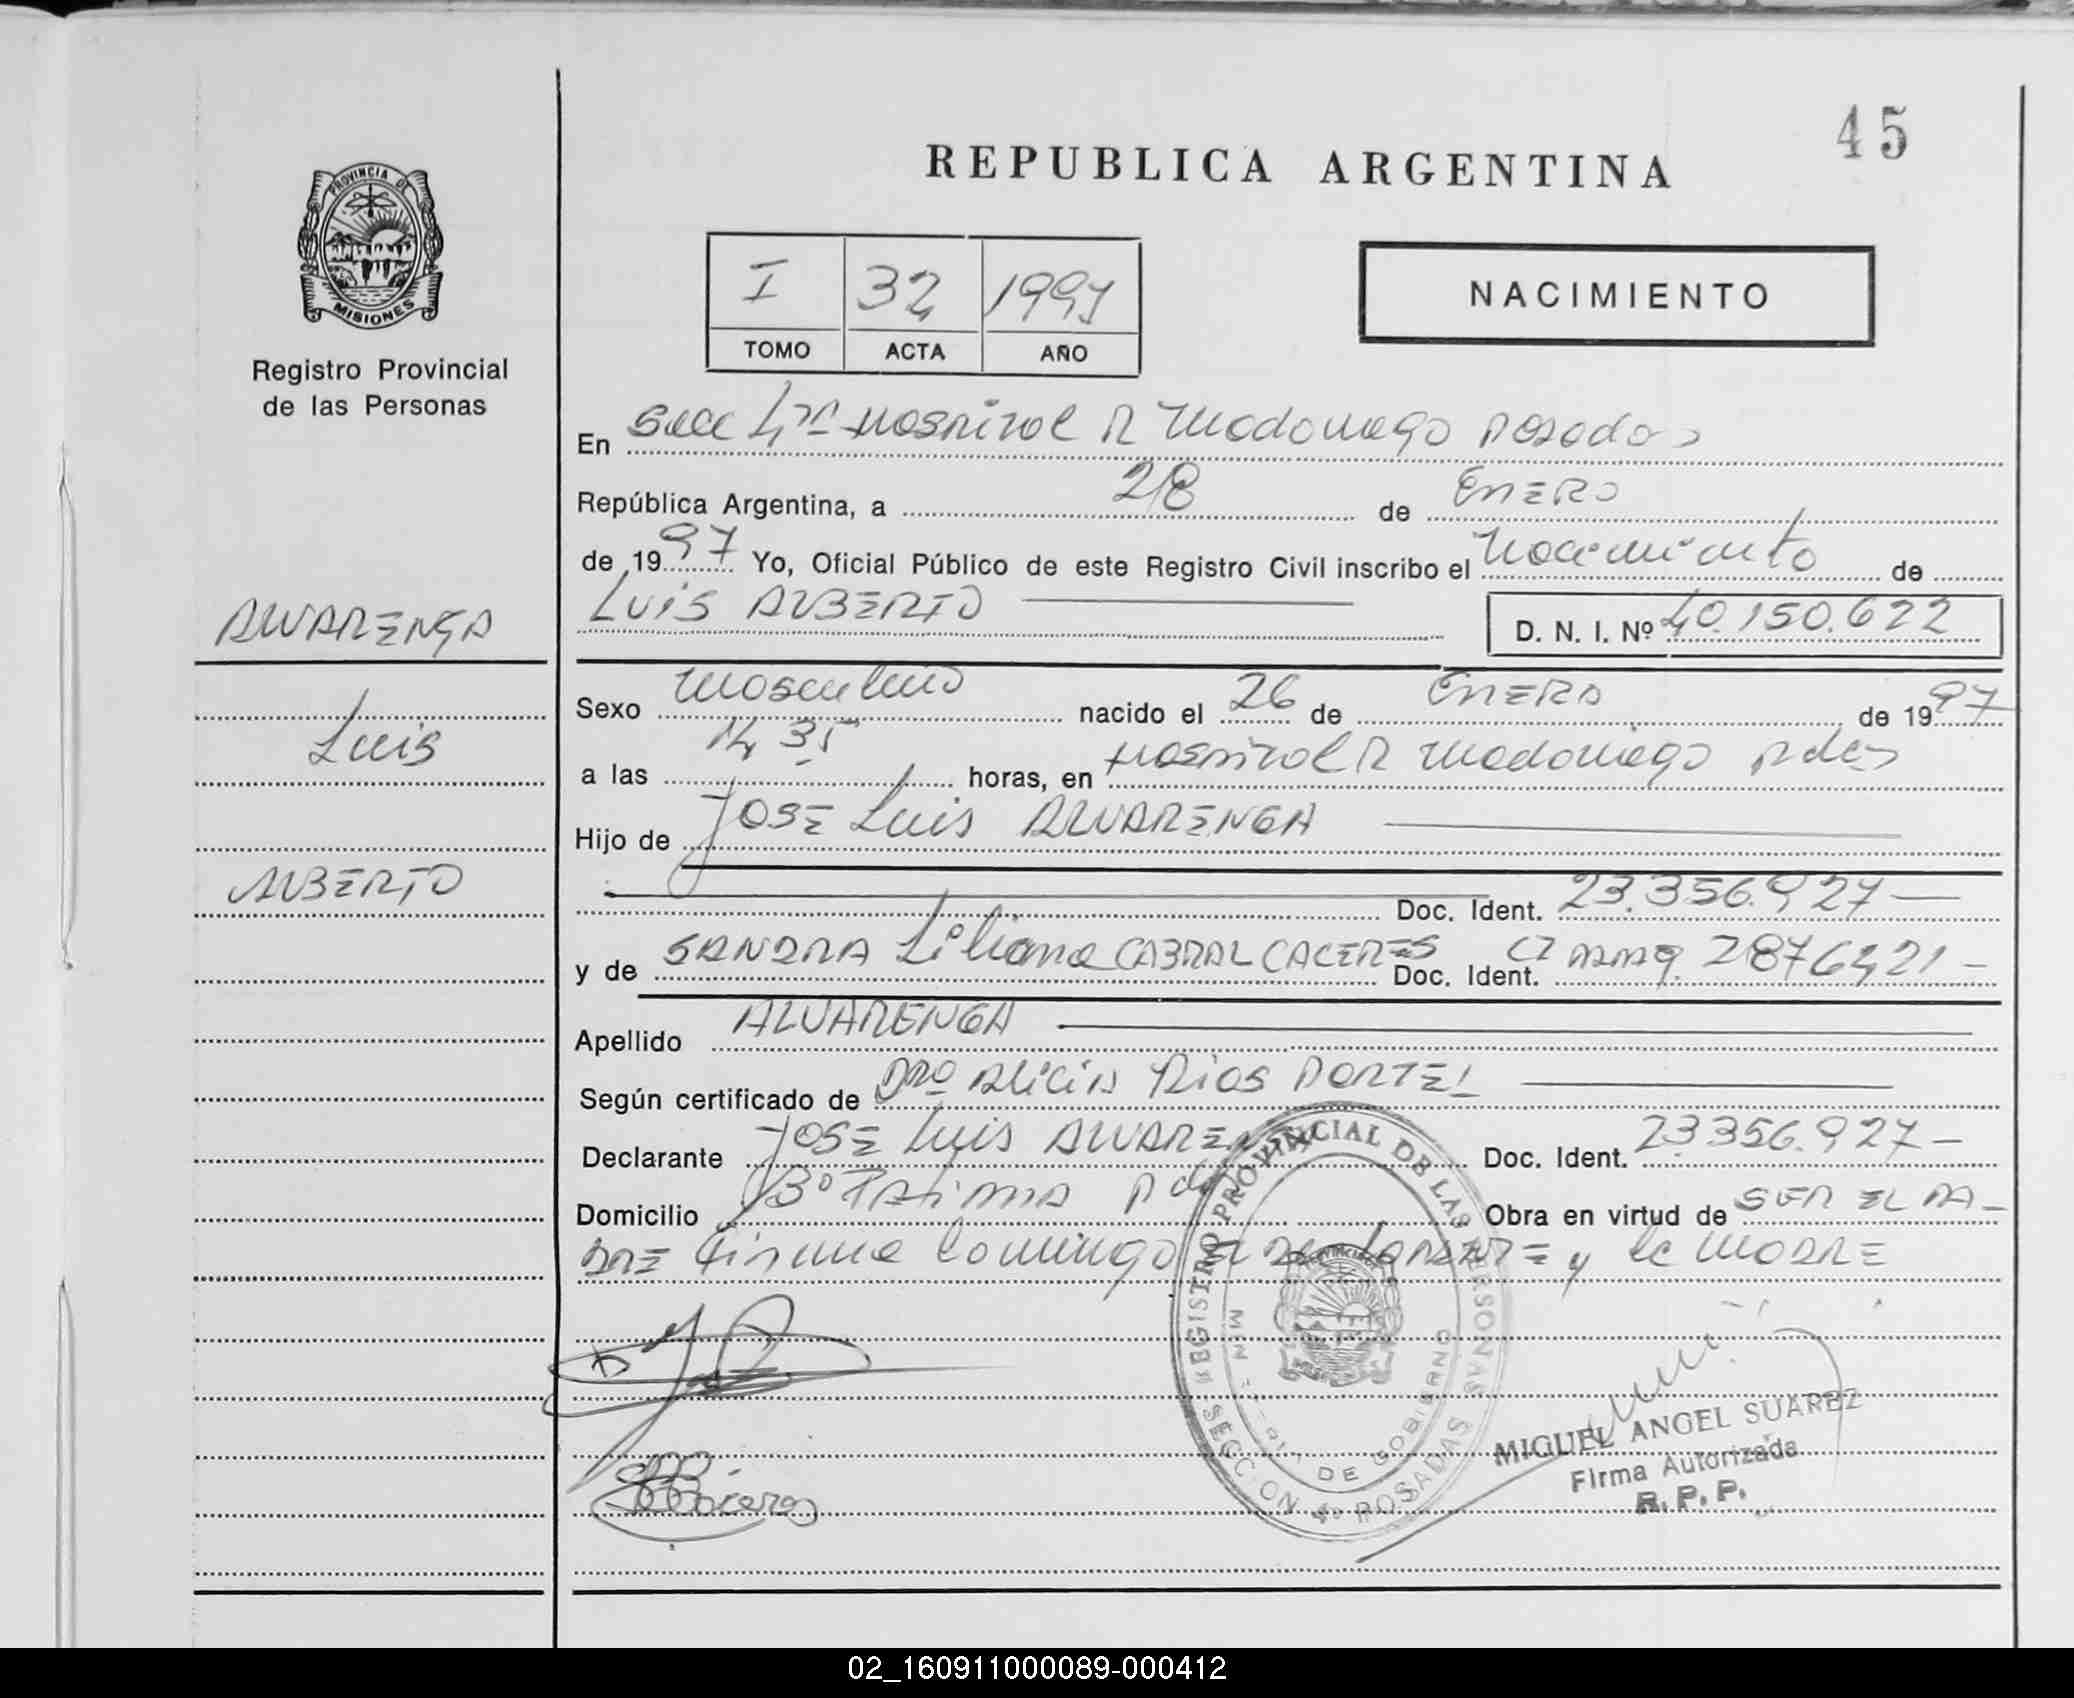 45
REPUBLICA ARGENTINA
PROVINCIA DE
MISIONES
Registro Provincial
de las Personas
I 32 1997
TOMO ACTA AÑO
NACIMIENTO
En Secc 4ta Hospital R Madariaga Posadas
República Argentina, a 28 de ENERO
de 1997 Yo, Oficial Público de este Registro Civil inscribo el Nacimiento de
LUIS ALBERTO D. N. I. Nº 40.150.622
ALVARENGA
Luis
ALBERTO
Sexo Masculino nacido el 26 de ENERO de 1997
a las 14 35 horas, en Hospital R Madariaga Pdas
Hijo de JOSE Luis ALVARENGA
Doc. Ident. 23.356.927
y de SANDRA Liliana CABRAL CACERES Doc. Ident. 2876421
Apellido ALVARENGA
Según certificado de Dra ALICIA RIOS PORTEL
Declarante JOSE Luis ALVARENGA Doc. Ident. 23.356.927
Domicilio Bº Pdas Obra en virtud de SER EL PA-
DRE firma conmigo el DECLARANTE y la MADRE
REGISTRO PROVINCIAL DE LAS PERSONAS
SECCION 4a POSADAS
DE GOBIERNO
MIGUEL ANGEL SUAREZ
Firma Autorizada
R. P. P.
02_160911000089-000412